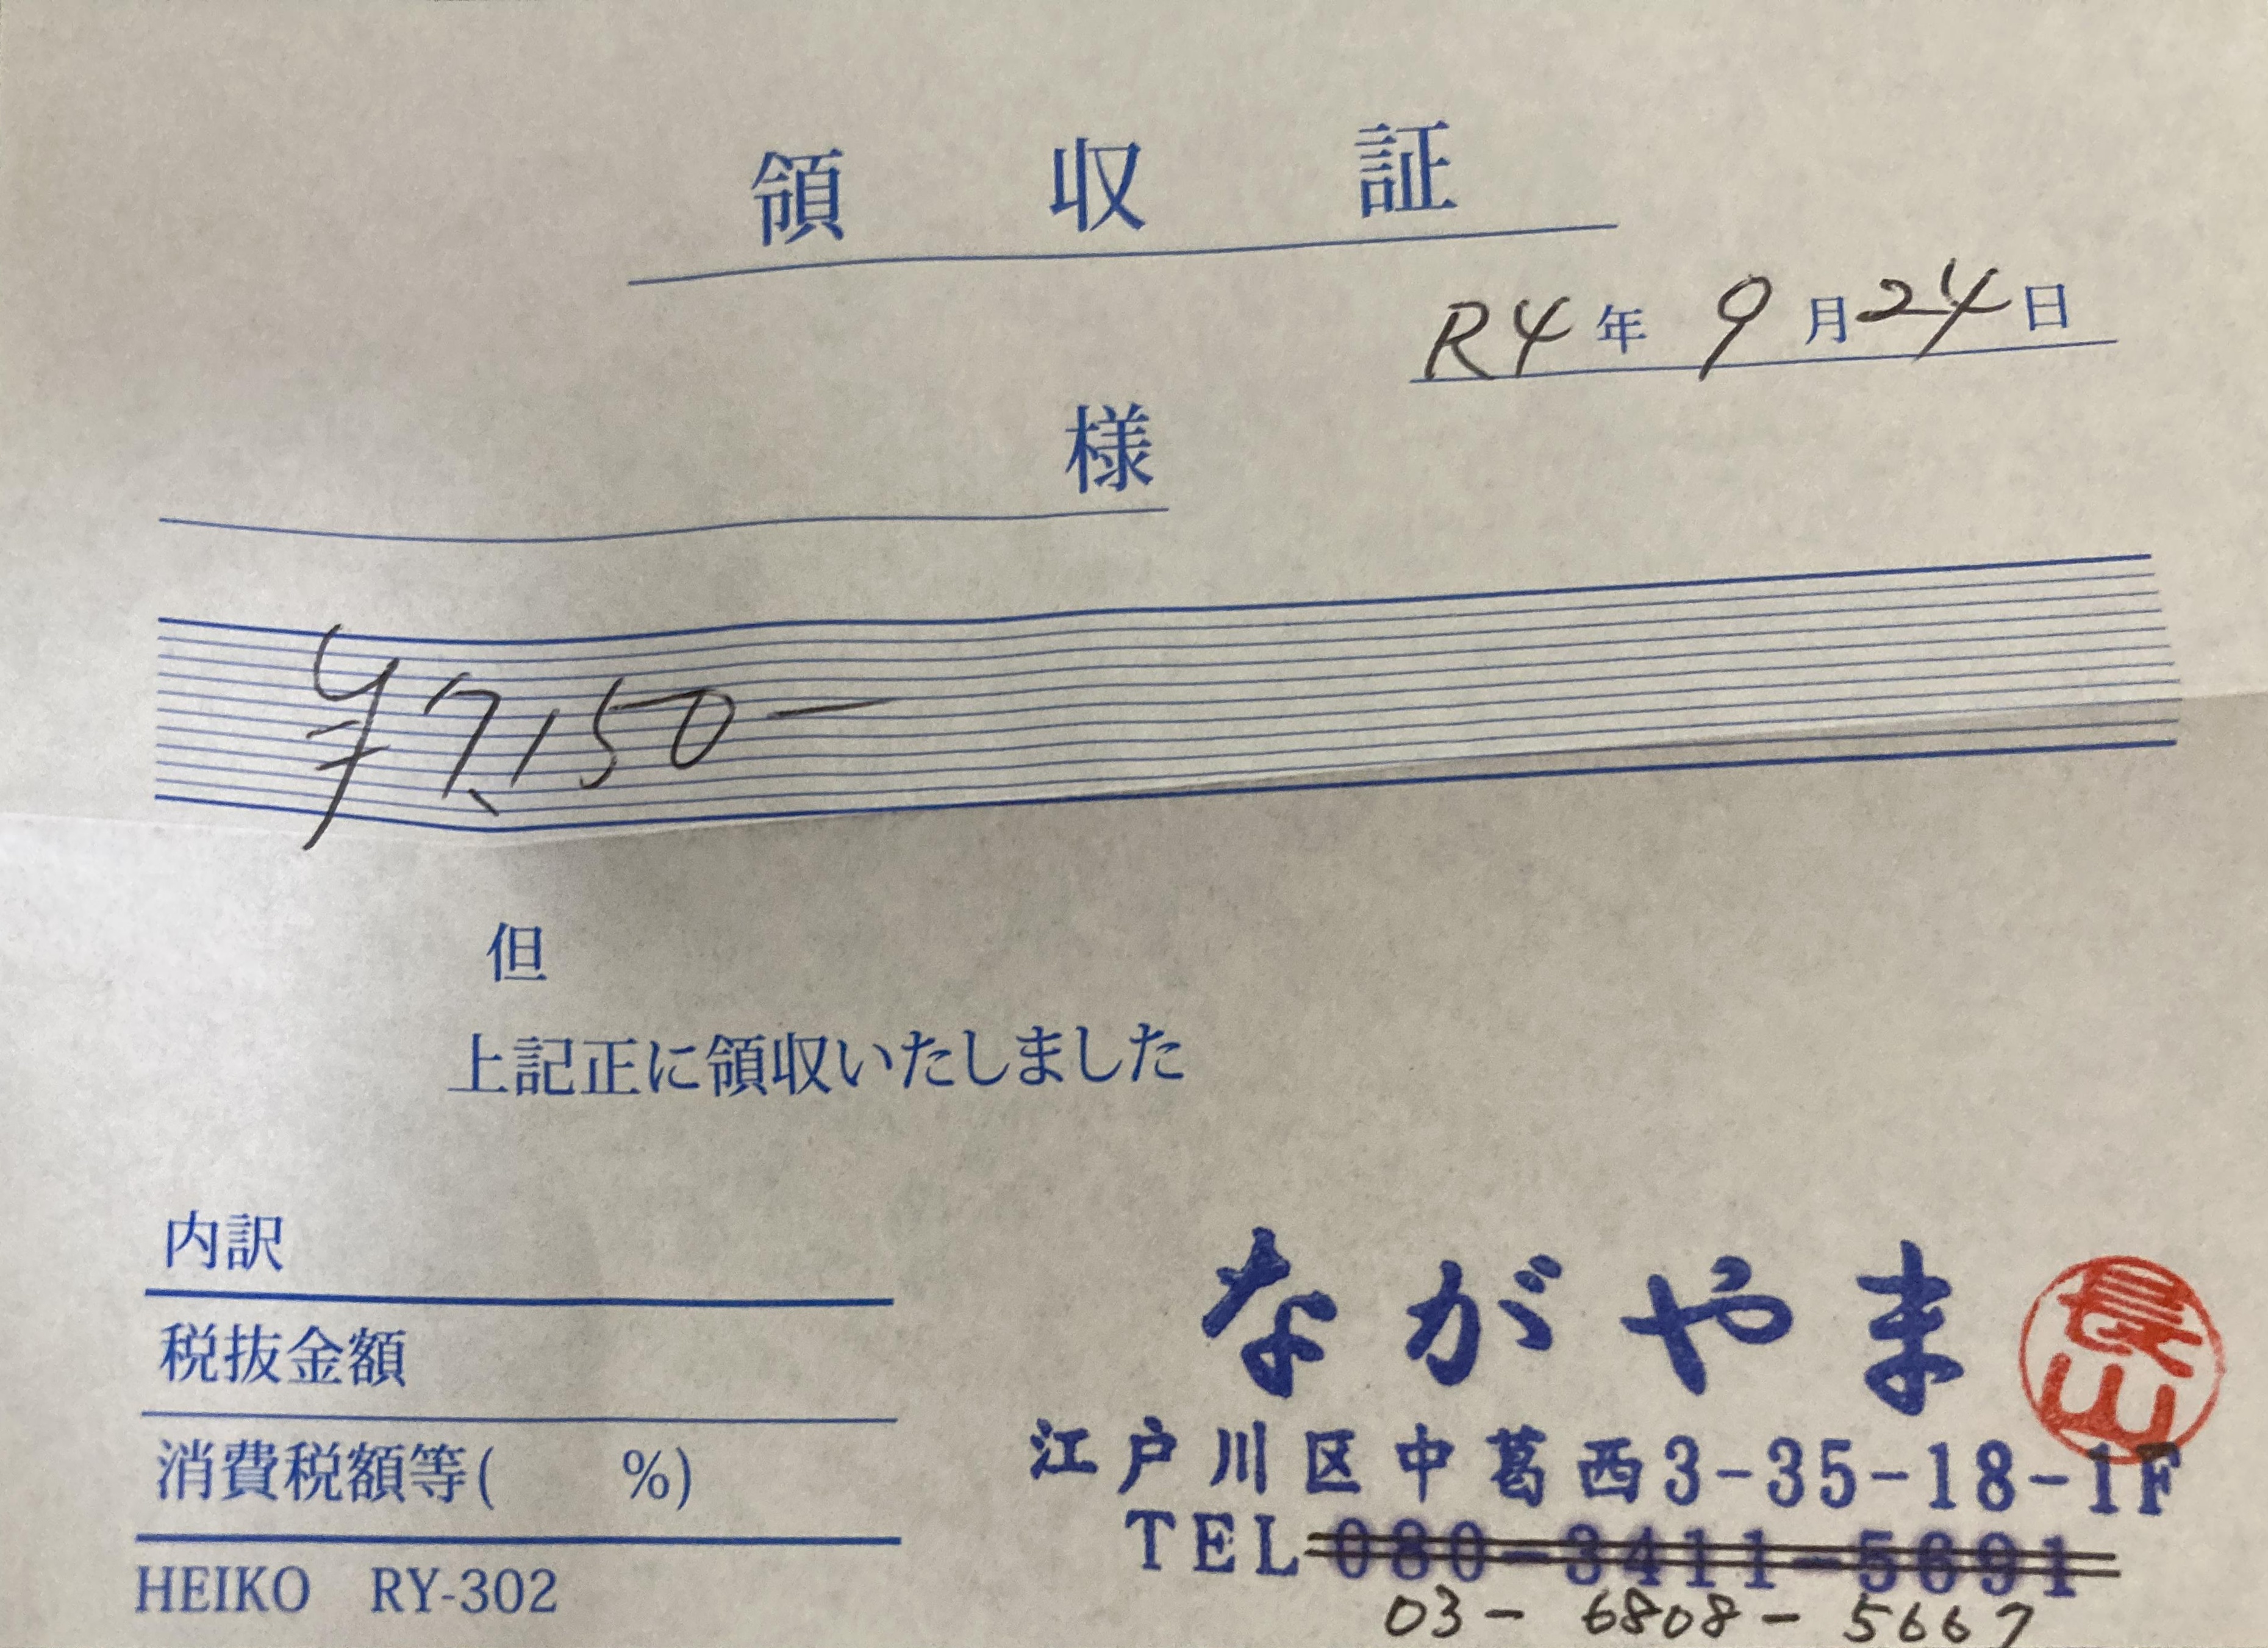 領収証
R4年 9月24日
様
¥7,150-
但
上記正に領収いたしました
内訳
税抜金額
消費税額等( %)
HEIKO RY-302
ながやま
長山
江戸川区中葛西3-35-18-1F
TEL 080-3411-5691
03-6808-5667